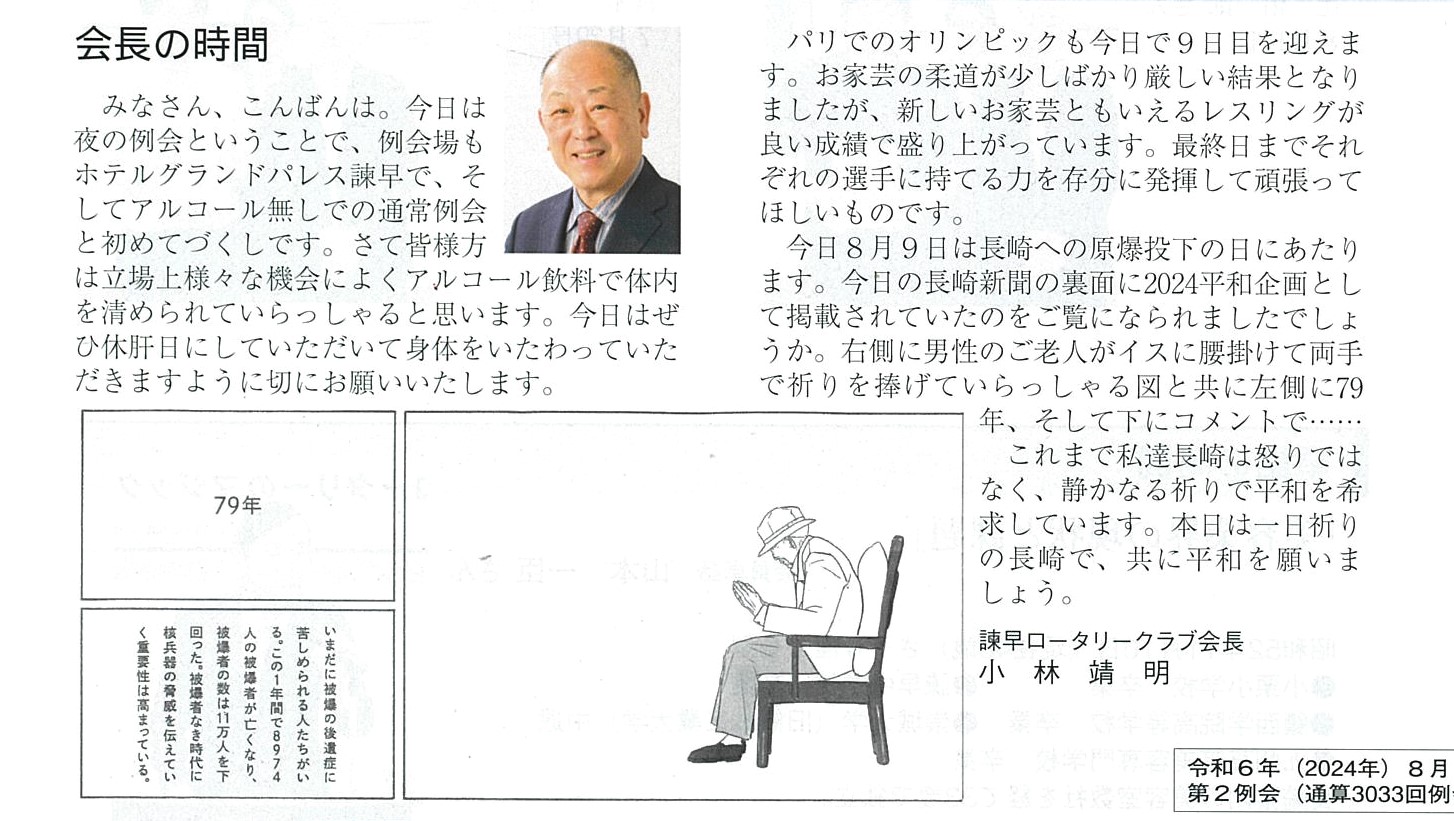 会長の時間
　みなさん、こんばんは。今日は
夜の例会ということで、例会場も
ホテルグランドパレス諫早で、そ
してアルコール無しでの通常例会
と初めてづくしです。さて皆様方
は立場上様々な機会によくアルコール飲料で体内
を清められていらっしゃると思います。今日はぜ
ひ休肝日にしていただいて身体をいたわっていた
だきますように切にお願いいたします。
　パリでのオリンピックも今日で９日目を迎えま
す。お家芸の柔道が少しばかり厳しい結果となり
ましたが、新しいお家芸ともいえるレスリングが
良い成績で盛り上がっています。最終日までそれ
ぞれの選手に持てる力を存分に発揮して頑張って
ほしいものです。
　今日８月９日は長崎への原爆投下の日にあたり
ます。今日の長崎新聞の裏面に2024平和企画とし
て掲載されていたのをご覧になられましたでしょ
うか。右側に男性のご老人がイスに腰掛けて両手
で祈りを捧げていらっしゃる図と共に左側に79
年、そして下にコメントで……
　これまで私達長崎は怒りでは
なく、静かなる祈りで平和を希
求しています。本日は一日祈り
の長崎で、共に平和を願いま
しょう。
諫早ロータリークラブ会長
小　林　靖　明
79年
いまだに被爆の後遺症に
苦しめられる人たちがい
る。この1年間で8974
人の被爆者が亡くなり、
被爆者の数は11万人を下
回った。被爆者なき時代に
核兵器の脅威を伝えてい
く重要性は高まっている。
令和６年（2024年）８月
第２例会（通算3033回例